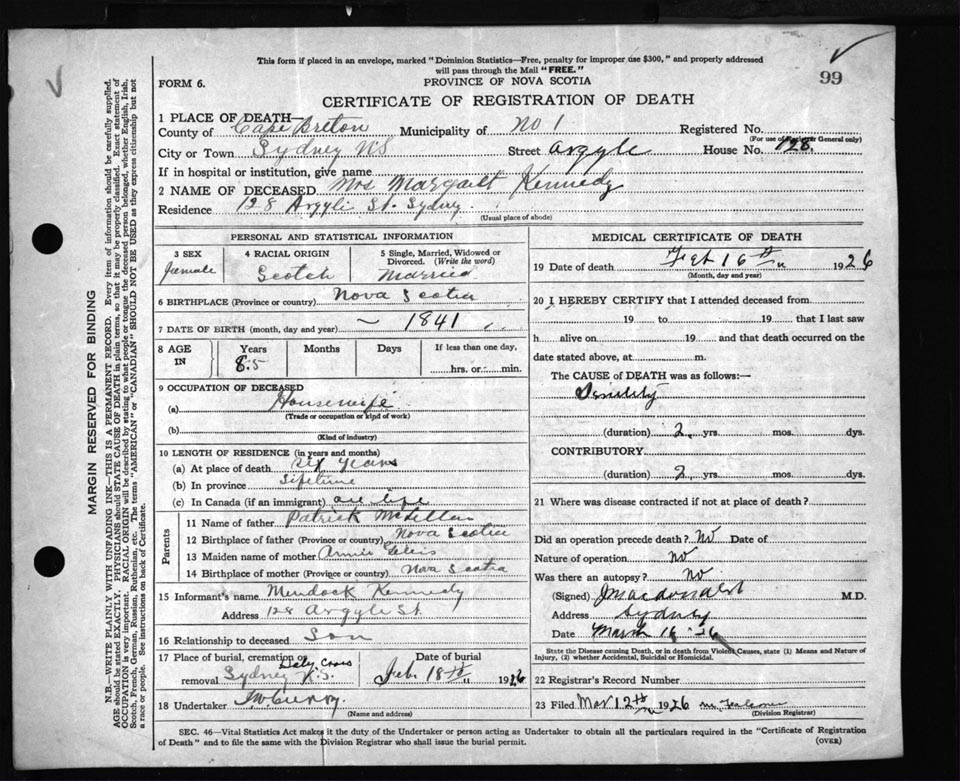 This form if placed in an envelope, marked "Dominion Statistics—Free, penalty for improper use $300," and properly addressed
will pass through the Mail "FREE."
99
FORM 6.
PROVINCE OF NOVA SCOTIA
CERTIFICATE OF REGISTRATION OF DEATH
1 PLACE OF DEATH—
County of Cape Breton Municipality of No 1 Registered No.
(For use of Registrar General only)
City or Town Sydney NS Street Argyle House No. 128
If in hospital or institution, give name
2 NAME OF DECEASED Mrs Margaret Kennedy
Residence 128 Argyle St. Sydney
(Usual place of abode)
PERSONAL AND STATISTICAL INFORMATION
3 SEX Female
4 RACIAL ORIGIN Scotch
5 Single, Married, Widowed or Divorced. (Write the word) Married
6 BIRTHPLACE (Province or country) Nova Scotia
7 DATE OF BIRTH (month, day and year) 1841
8 AGE IN Years 85 Months Days If less than one day, hrs. or min.
9 OCCUPATION OF DECEASED
(a) Housewife
(Trade or occupation or kind of work)
(b)
(Kind of industry)
10 LENGTH OF RESIDENCE (in years and months)
(a) At place of death six years
(b) In province Lifetime
(c) In Canada (if an immigrant) all life
Parents
11 Name of father Patrick McLellan
12 Birthplace of father (Province or country) Nova Scotia
13 Maiden name of mother Annie
14 Birthplace of mother (Province or country) Nova Scotia
15 Informant's name Murdock Kennedy
Address 128 Argyle St.
16 Relationship to deceased Son
17 Place of burial, cremation or removal Holy Cross Sydney N.S. Date of burial Feb 18th 1926
18 Undertaker Curry
(Name and address)
MEDICAL CERTIFICATE OF DEATH
19 Date of death Feb 16th 1926
(Month, day and year)
20 I HEREBY CERTIFY that I attended deceased from
19 to 19 that I last saw
h alive on 19 and that death occurred on the
date stated above, at m.
The CAUSE OF DEATH was as follows:—
Senility
(duration) 2 yrs. mos. dys.
CONTRIBUTORY
(duration) 2 yrs. mos. dys.
21 Where was disease contracted if not at place of death?
Did an operation precede death? No Date of
Nature of operation No
Was there an autopsy? no
(Signed) J Macdonald M.D.
Address Sydney
Date March 16 26
State the Disease causing Death, or in death from Violent Causes, state (1) Means and Nature of
Injury, (2) whether Accidental, Suicidal or Homicidal.
22 Registrar's Record Number
23 Filed Mar 12th 1926
(Division Registrar)
SEC. 46—Vital Statistics Act makes it the duty of the Undertaker or person acting as Undertaker to obtain all the particulars required in the "Certificate of Registration
of Death" and to file the same with the Division Registrar who shall issue the burial permit.
(OVER)
MARGIN RESERVED FOR BINDING
N.B.—WRITE PLAINLY WITH UNFADING INK—THIS IS A PERMANENT RECORD. Every item of information should be carefully supplied.
AGE should be stated EXACTLY. PHYSICIANS should STATE CAUSE OF DEATH in plain terms, so that it may be properly classified. Exact statement of
OCCUPATION is very important. RACIAL ORIGIN will be described by stating to what people or tongue the deceased person belonged, whether English, Irish,
Scotch, French, German, Russian, Ruthenian, etc. The terms "AMERICAN" or "CANADIAN" SHOULD NOT BE USED as they express citizenship but not
a race or people. See instructions on back of Certificate.